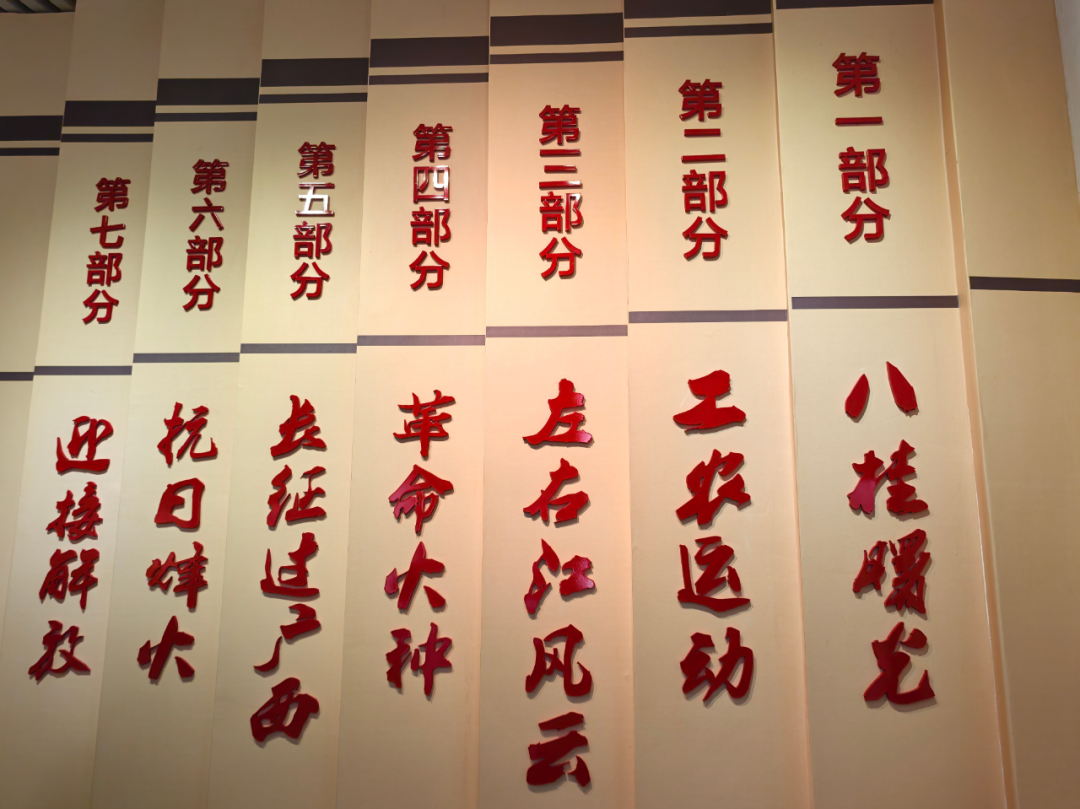 第一部分
八桂曙光
第二部分
工农运动
第三部分
左右江风云
第四部分
革命火种
第五部分
长征过广西
第六部分
抗日烽火
第七部分
迎接解放